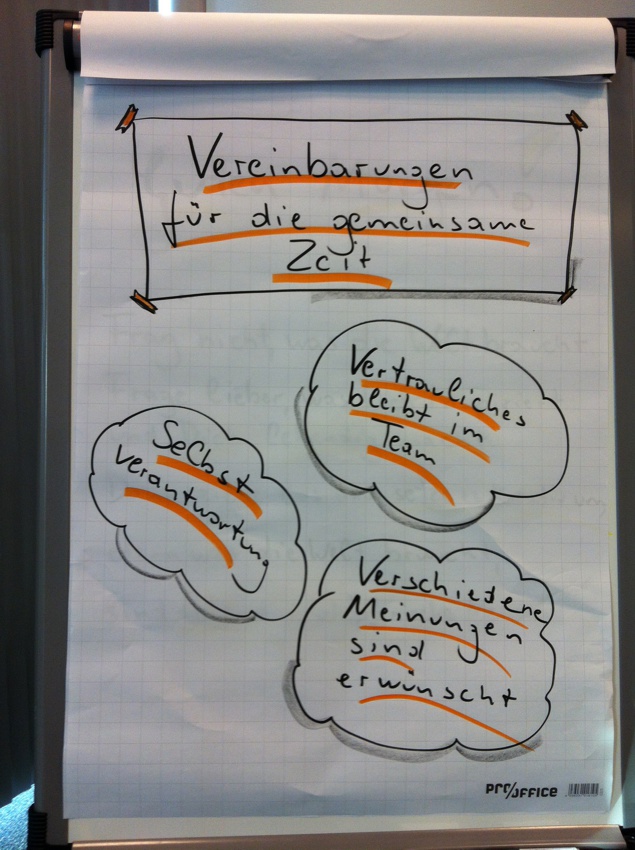 Vereinbarungen
für die gemeinsame
Zeit
Vertrauliches
bleibt im
Team
Selbst
verantwortung
Verschiedene
Meinungen
sind
erwünscht
PRO/OFFICE